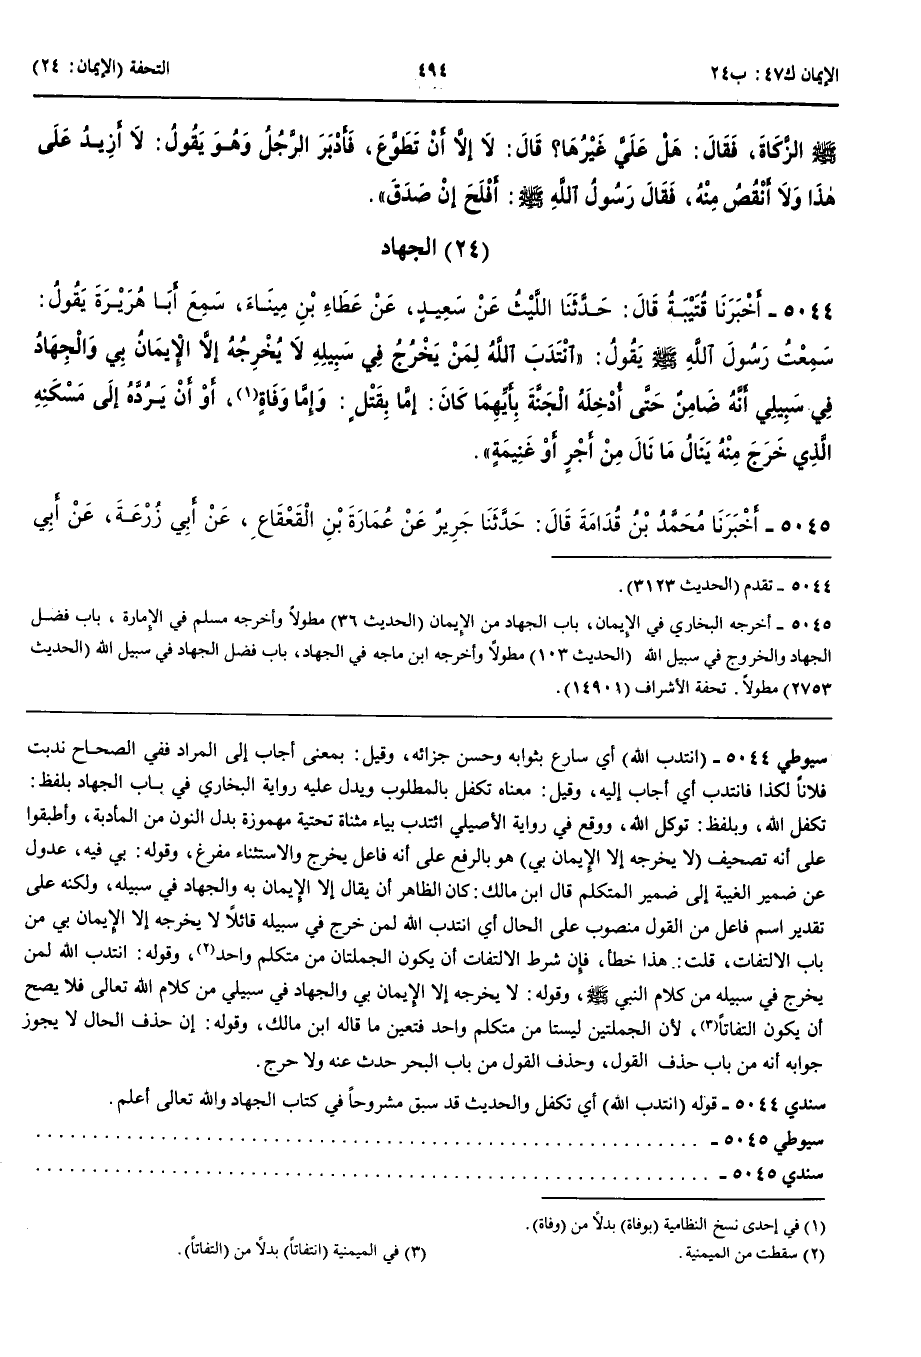 الإيمان ك٤٧: ب٢٤ ٤٩٤ التحفة (الإيمان: ٢٤)
ﷺ الزَّكَاةَ، فَقَالَ: هَلْ عَلَيَّ غَيْرُهَا؟ قَالَ: لَا إِلَّا أَنْ تَطَوَّعَ، فَأَدْبَرَ الرَّجُلُ وَهُوَ يَقُولُ: لَا أَزِيدُ عَلَى
هٰذَا وَلَا أَنْقُصُ مِنْهُ، فَقَالَ رَسُولُ ٱللَّهِ ﷺ: أَفْلَحَ إِنْ صَدَقَ».
(٢٤) الجهاد
٥٠٤٤ ـ أَخْبَرَنَا قُتَيْبَةُ قَالَ: حَدَّثَنَا اللَّيْثُ عَنْ سَعِيدٍ، عَنْ عَطَاءِ بْنِ مِينَاءَ، سَمِعَ أَبَا هُرَيْرَةَ يَقُولُ:
سَمِعْتُ رَسُولَ ٱللَّهِ ﷺ يَقُولُ: «ٱنْتَدَبَ ٱللَّهُ لِمَنْ يَخْرُجُ فِي سَبِيلِهِ لَا يُخْرِجُهُ إِلَّا الْإِيمَانُ بِي وَالْجِهَادُ
فِي سَبِيلِي أَنَّهُ ضَامِنٌ حَتَّى أُدْخِلَهُ الْجَنَّةَ بِأَيِّهِمَا كَانَ: إِمَّا بِقَتْلٍ: وَإِمَّا وَفَاةٍ(١)، أَوْ أَنْ يَرُدَّهُ إِلَى مَسْكَنِهِ
الَّذِي خَرَجَ مِنْهُ يَنَالُ مَا نَالَ مِنْ أَجْرٍ أَوْ غَنِيمَةٍ».
٥٠٤٥ ـ أَخْبَرَنَا مُحَمَّدُ بْنُ قُدَامَةَ قَالَ: حَدَّثَنَا جَرِيرٌ عَنْ عُمَارَةَ بْنِ الْقَعْقَاعِ، عَنْ أَبِي زُرْعَةَ، عَنْ أَبِي
٥٠٤٤ ـ تقدم (الحديث ٣١٢٣).
٥٠٤٥ ـ أخرجه البخاري في الإيمان، باب الجهاد من الإيمان (الحديث ٣٦) مطولاً وأخرجه مسلم في الإمارة، باب فضل
الجهاد والخروج في سبيل الله (الحديث ١٠٣) مطولاً وأخرجه ابن ماجه في الجهاد، باب فضل الجهاد في سبيل الله (الحديث
٢٧٥٣) مطولاً. تحفة الأشراف (١٤٩٠١).
سيوطي ٥٠٤٤ ـ (انتدب الله) أي سارع بثوابه وحسن جزائه، وقيل: بمعنى أجاب إلى المراد ففي الصحاح ندبت
فلاناً لكذا فانتدب أي أجاب إليه، وقيل: معناه تكفل بالمطلوب ويدل عليه رواية البخاري في باب الجهاد بلفظ:
تكفل الله، وبلفظ: توكل الله، ووقع في رواية الأصيلي ائتدب بياء مثناة تحتية مهموزة بدل النون من المأدبة، وأطبقوا
على أنه تصحيف (لا يخرجه إلا الإيمان بي) هو بالرفع على أنه فاعل يخرج والاستثناء مفرغ، وقوله: بي فيه، عدول
عن ضمير الغيبة إلى ضمير المتكلم قال ابن مالك: كان الظاهر أن يقال إلا الإيمان به والجهاد في سبيله، ولكنه على
تقدير اسم فاعل من القول منصوب على الحال أي انتدب الله لمن خرج في سبيله قائلاً لا يخرجه إلا الإيمان بي من
باب الالتفات، قلت: هذا خطأ، فإن شرط الالتفات أن يكون الجملتان من متكلم واحد(٢)، وقوله: انتدب الله لمن
يخرج في سبيله من كلام النبي ﷺ، وقوله: لا يخرجه إلا الإيمان بي والجهاد في سبيلي من كلام الله تعالى فلا يصح
أن يكون التفاتاً(٣)، لأن الجملتين ليستا من متكلم واحد فتعين ما قاله ابن مالك، وقوله: إن حذف الحال لا يجوز
جوابه أنه من باب حذف القول، وحذف القول من باب البحر حدث عنه ولا حرج.
سندي ٥٠٤٤ ـ قوله (انتدب الله) أي تكفل والحديث قد سبق مشروحاً في كتاب الجهاد والله تعالى أعلم.
سيوطي ٥٠٤٥ ـ . . . . . . . . . . . . . . . . . . . . . . . . . . . . . .
سندي ٥٠٤٥ ـ . . . . . . . . . . . . . . . . . . . . . . . . . . . . . .
(١) في إحدى نسخ النظامية (بوفاة) بدلاً من (وفاة).
(٢) سقطت من الميمنية. (٣) في الميمنية (انتفاتاً) بدلاً من (التفاتاً).